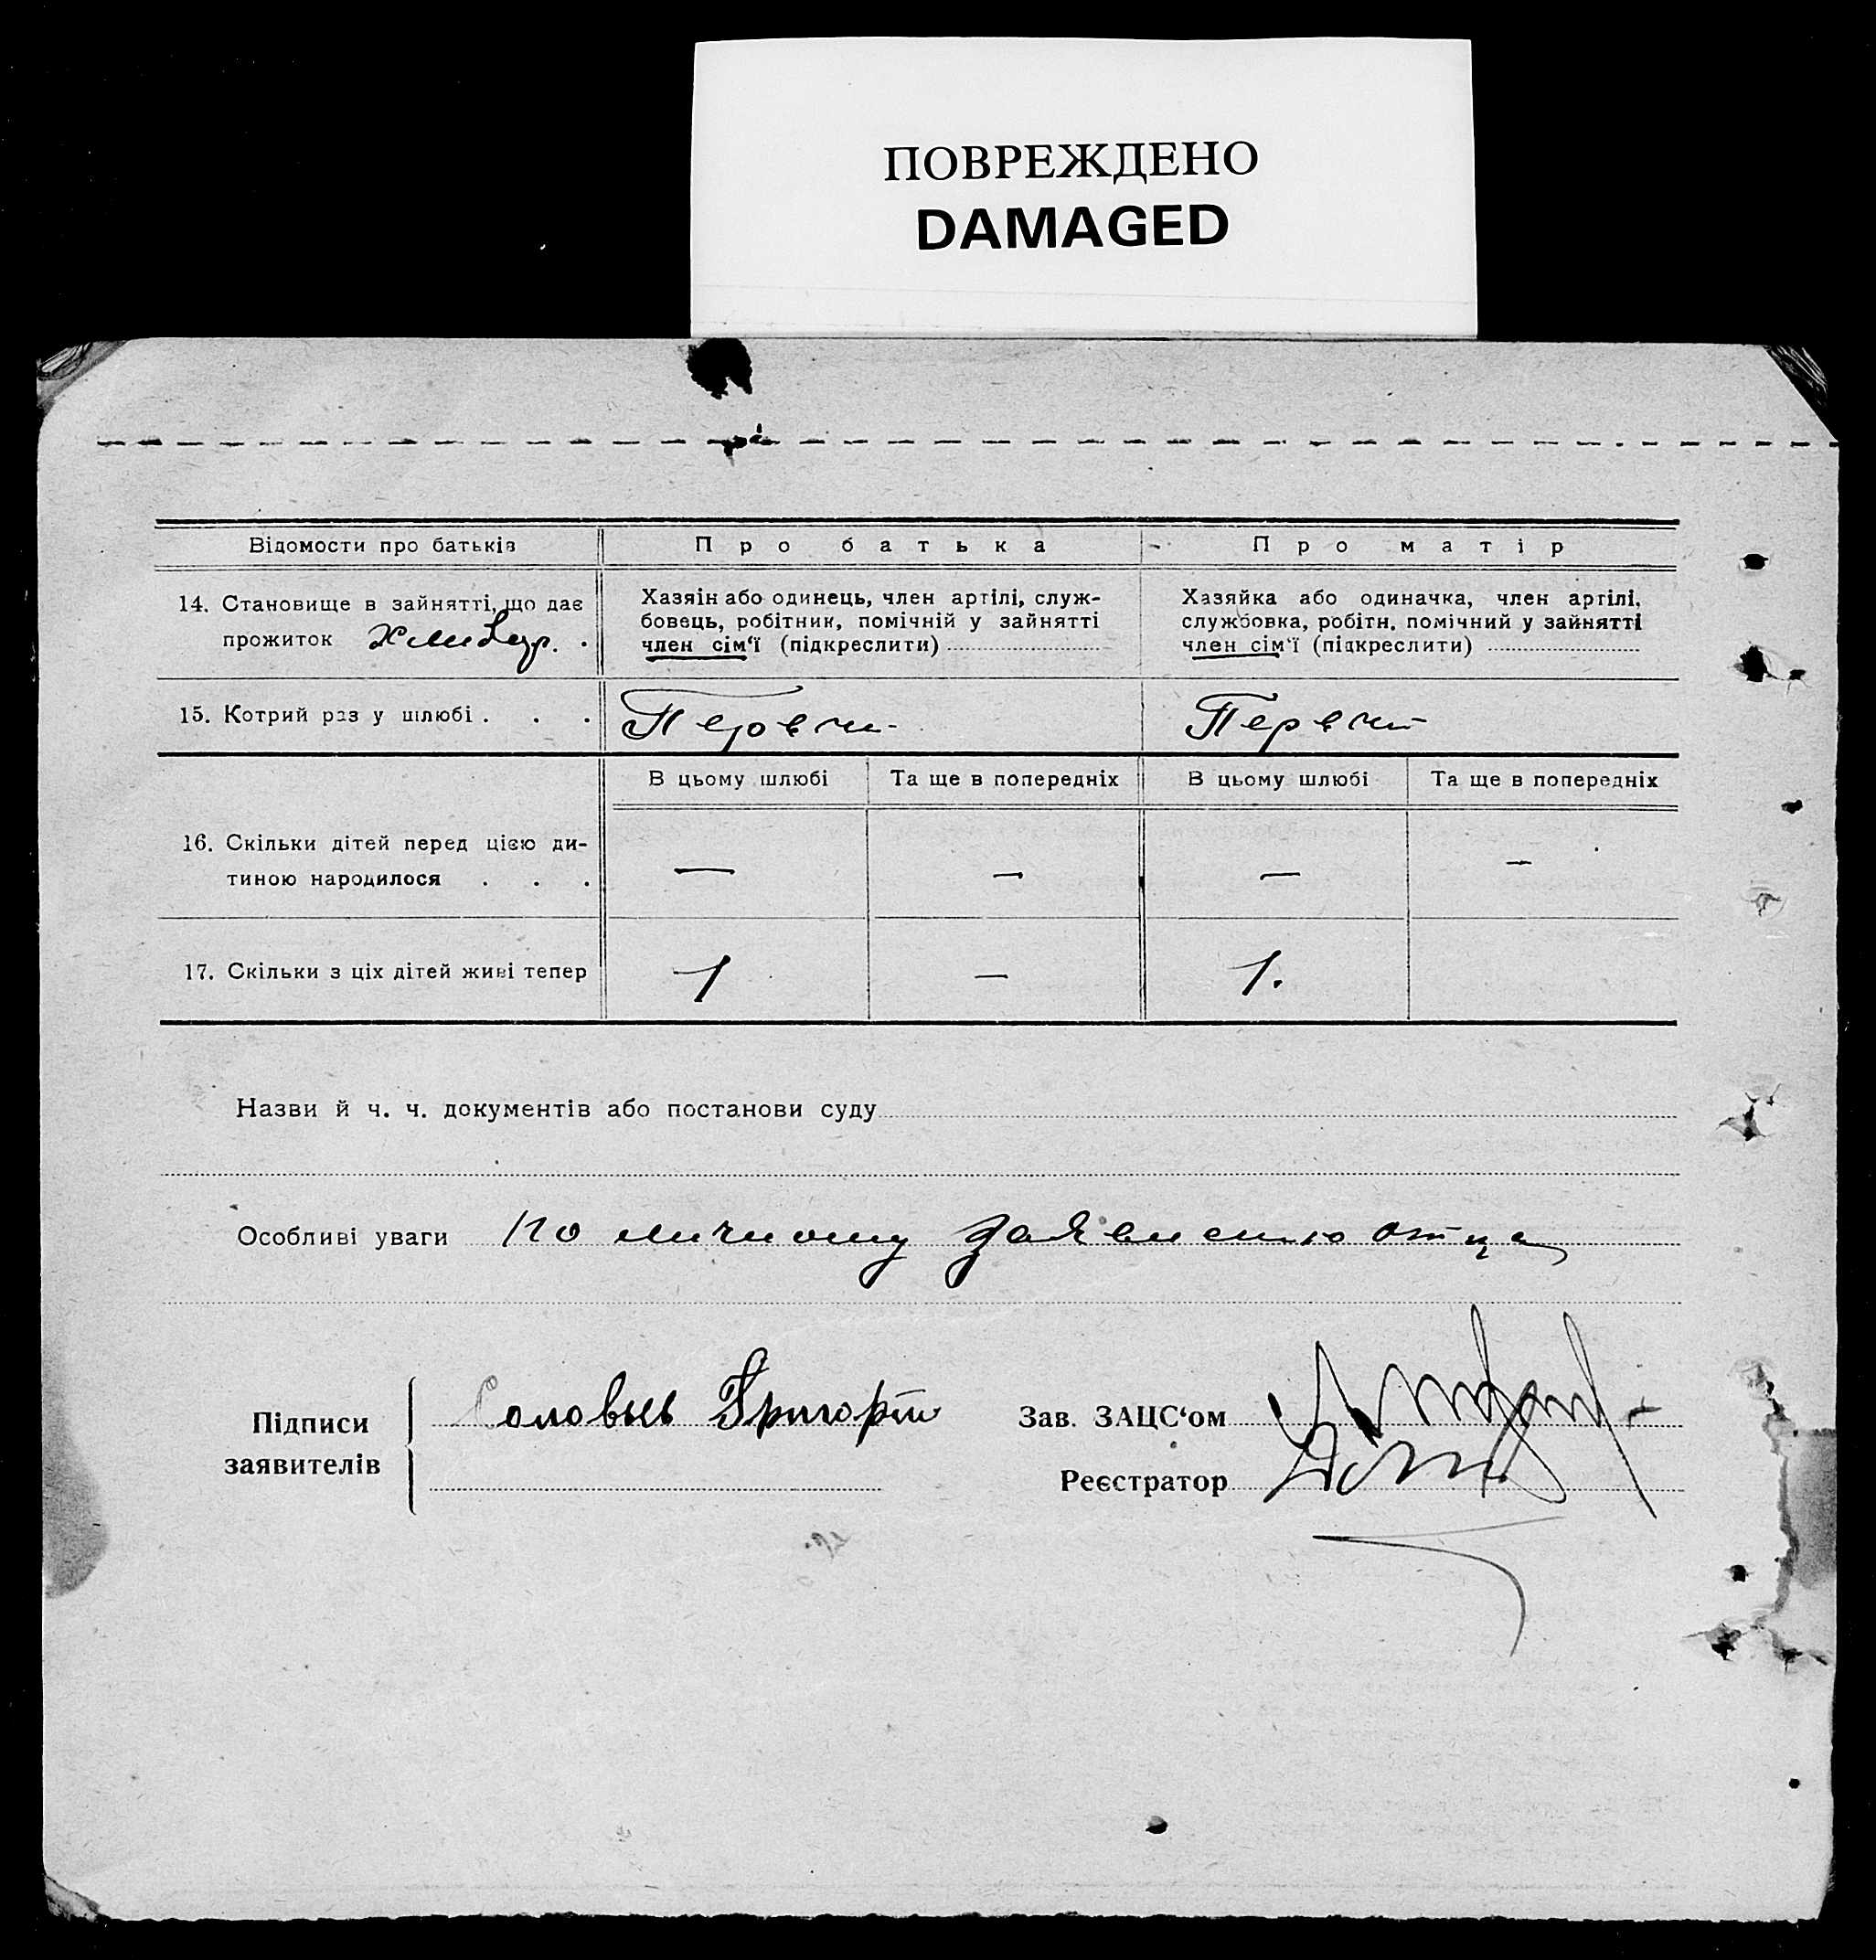 ПОВРЕЖДЕНО
DAMAGED
Відомости про батьків
Про батька
Про матір
14. Становище в зайнятті, що дає
прожиток
Хазяін або одинець, член артілі, служ-
бовець, робітник, помічній у зайнятті
член сім‘ї (підкреслити)
Хазяйка або одиначка, член артілі,
службовка, робітн. помічний у зайнятті
член сім‘ї (підкреслити)
15. Котрий раз у шлюбі . . .
Первий
Первий
В цьому шлюбі
Та ще в попередніх
В цьому шлюбі
Та ще в попередніх
16. Скільки дітей перед цією ди-
тиною народилося . . .
— — — —
17. Скільки з ціх дітей живі тепер
1 — 1.
Назви й ч. ч. документів або постанови суду
Особливі уваги По личному заявлению отца
Підписи
заявителів
Соловьев Григорий
Зав. ЗАЦС‘ом
Реєстратор